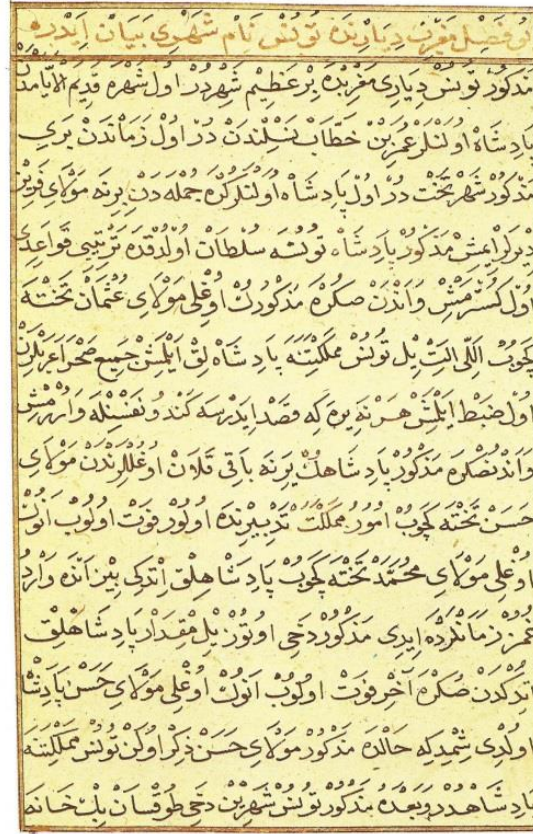 بو فصل مغرب دیارنده تونس نام شهری بیان ایدر
مذکور تونس دیاری مغربده بر عظیم شهردر اول شهره قدیم الایامدن
پادشاه اولنلر عمر بن خطاب نسلندن در اول زماندن بری
مذکور شهر تخت در اول پادشاه اولنلرکره جمله دن برنه مولای
دیرلر ایمش مذکور پادشاه تونسه سلطان اولدقده ترتیبی قواعدی
اول کسرمش واندن صکره مذکورك اوغلی مولای عثمان تخته
کچوب اللی التی ییل تونس مملکتنه پادشاه لق ایلمش جمیع صحرا عربلرن
اول ضبط ایلمش هر نه یره که قصد ایدرسه کندو نفسیله وارورمش
واندنصکره مذکور پادشاهك یرنه باقی قلان اوغللرندن مولای
حسن تخته کچوب امور مملکت تدبیرنده اولور فوت اولوب انوك
اوغلی مولای محمد تخته کچوب پادشاهلق اتدکی بیز انده واردو
غمز زمانلرده ایدی مذکور دخی اوتوز ییل مقدار پادشاهلق
اتدکدن صکره آخر فوت اولوب انوك اوغلی مولای حسن پادشا
اولدی شمدیکه حالده مذکور مولای حسن ذکر اولن تونس مملکتنه
پادشاهدر وبعده مذکور تونس شهرین دخی طوقسان بیك خانه